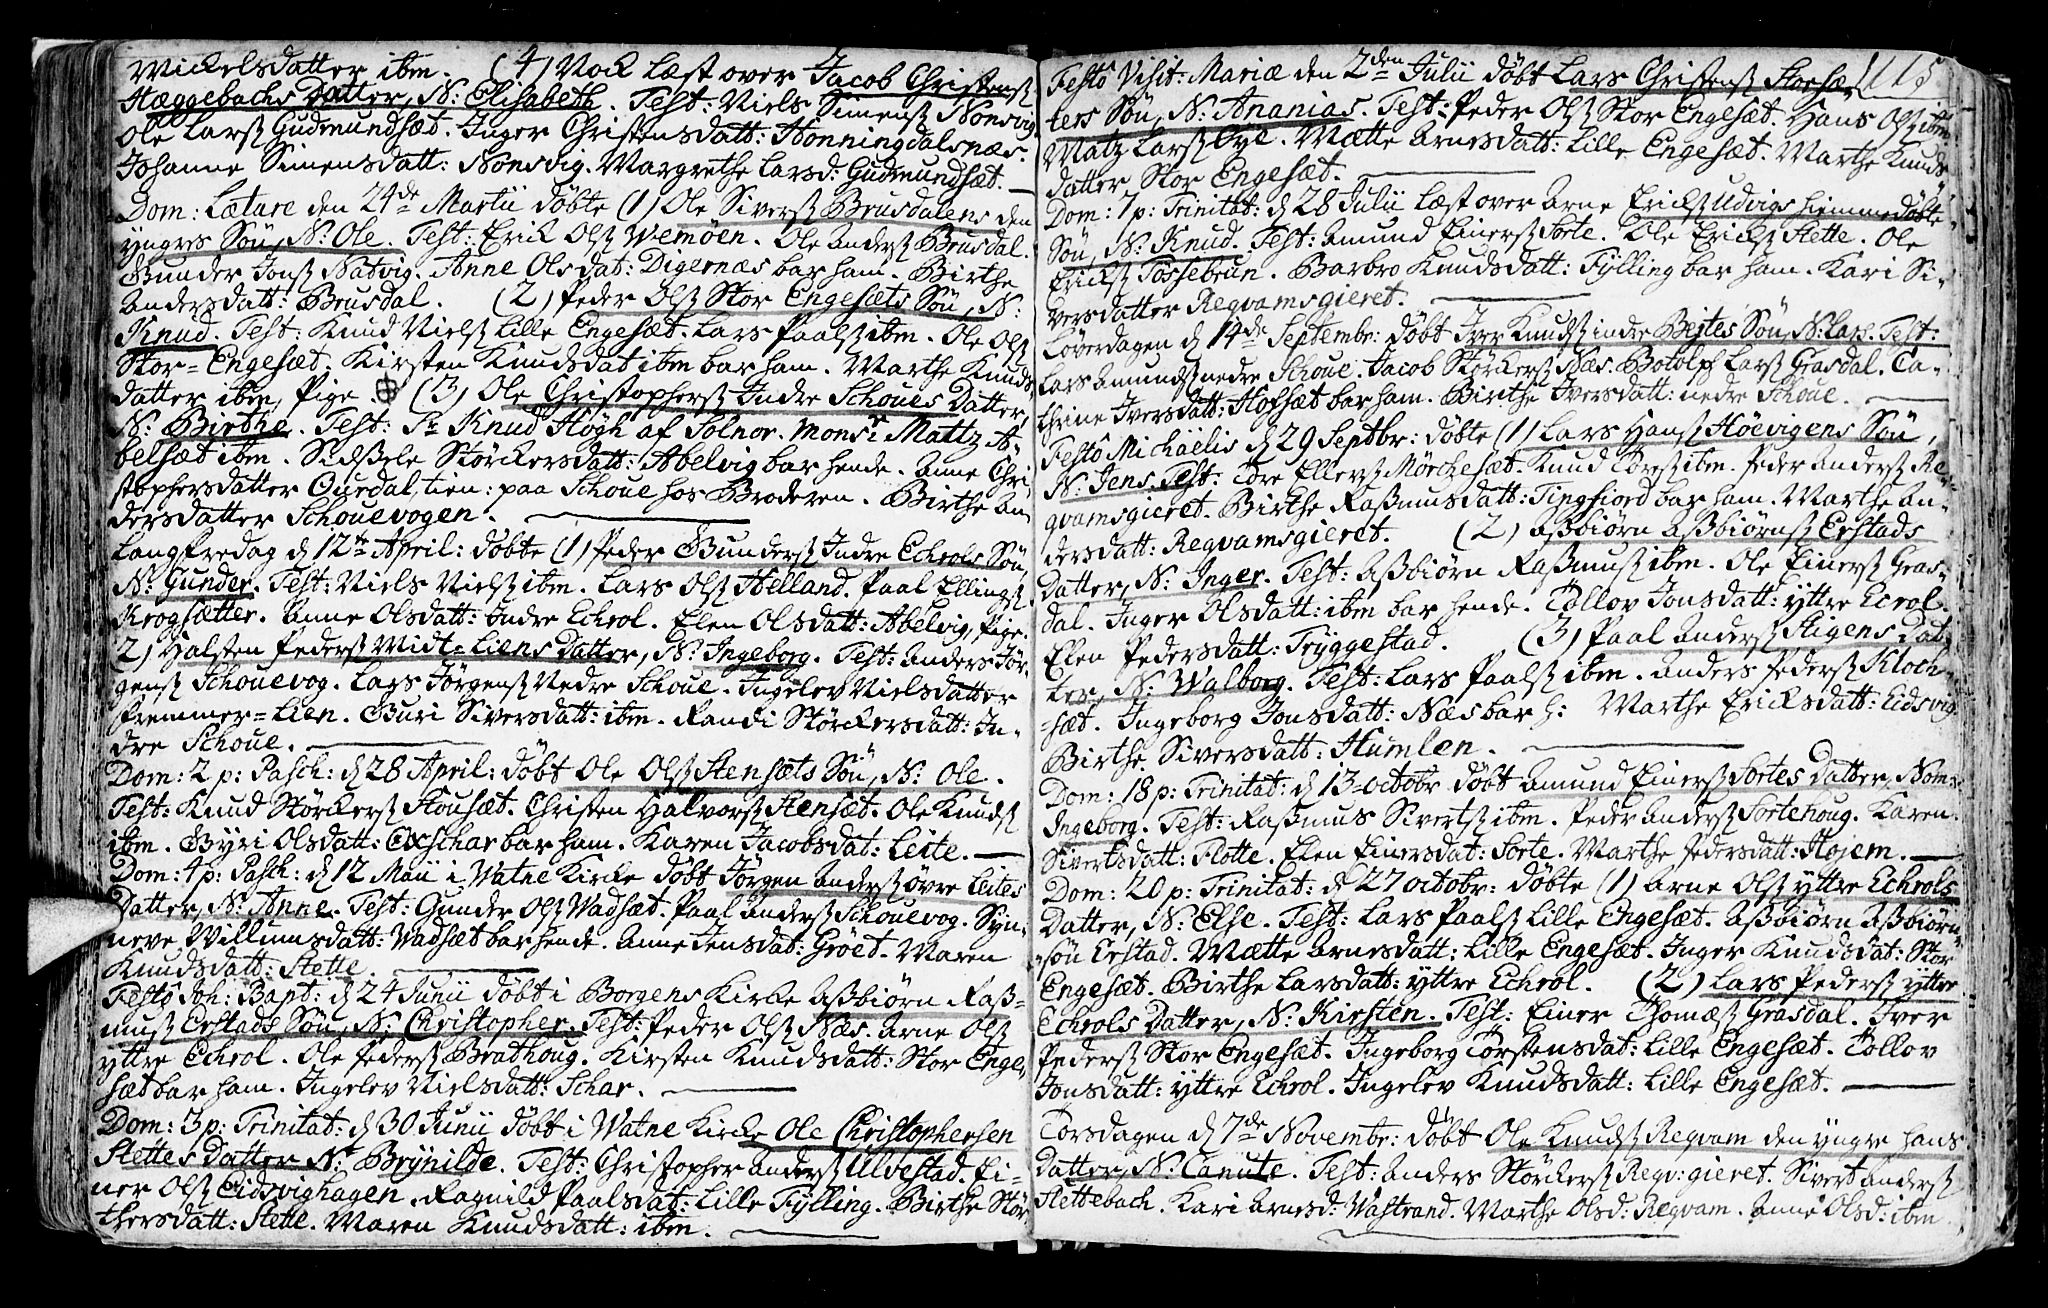 Mickelsdatter ibm. (4) Nock læst over Jacob Christensß
Hæggebachs Datter, N: Elisabeth. Test: Niels Simensß Nonsvig
Ole Larsß Gudmundsæt. Inger Christensdatt: Honningdalsnæs.
Johanne Simensdatt: Nonsvig. Margrethe Larsd: Gudmundsæt.
Dom: Lætare den 24de Martii døbte (1) Ole Siversß Brusdalens den
yngres Søn, N: Ole. Test: Erick Olsß Wemøen. Ole Andersß Brusdal.
Gunder Jonsß Natvig. Anne Olsdat: Digernæs bar ham. Birthe
Andersdatt: Brusdal. (2) Peder Olsß Stor Engesæts Søn, N:
Knud. Test: Knud Nielsß Lille Engesæt. Lars Paalsß ibm. Ole Olsß
Stor=Engesæt. Kirsten Knudsdat ibm bar ham. Marthe Knuds
datter ibm, Pige. (3) Ole Christophersß Indre Schoues Datter,
N: Birthe. Test: Sr Knud Høgh af Solnor. Monsr Mattz A-
belsæt ibm. Sidsele Størckersdatt: Abelvig bar hende. Anne Chri
stophersdatter Ouedal, tien: paa Schoue hos Broderen. Birthe An
dersdatter Schouevogen.
Langfredag d 12te April: døbte (1) Peder Gundersß Indre Echrols Søn,
N: Gunder. Test: Niels Nielsß ibm. Lars Olsß Helland. Paal Ellingsß
Krogsætter. Anne Olsdatt: Indre Echrol. Elen Olsdatt: Abelvig, Pige.
2) Halsten Pedersß Midt=Liens Datter, N: Ingeborg. Test: Anders Jør-
gensß Schouevog. Lars Jørgensß Nedre Schoue. Ingelev Nielsdatter
Fremmer=Lien. Guri Siversdatt: ibm. Randi Størckersdatt: In-
dre Schoue.
Dom: 2 p: Pasch: d 28 April: døbt Ole Olsß Stensæts Søn, N: Ole.
Test: Knud Størckersß Skousæt. Christen Halvorsß Stensæt. Ole Knudsß
ibm. Gyri Olsdatt: Exschar bar ham. Karen Jacobsdat: Leite.
Dom: 4 p: Pasch: d 12 Maii i Watne Kircke døbt Jørgen Andersß øvre Leites
Datter, N: Anne. Test: Gunder Olsß Wadsæt. Paal Andersß Schouevog. Syn-
neve Willumsdatt: Wadsæt bar hende. Anne Jensdat: Grøet. Maren
Knudsdatt: Stette.
Festô Joh: Bapt: d 24 Junii døbt i Borgens Kirke Asbiørn Ras=
musß Erstads Søn, N: Christopher. Test: Peder Olsß Næs. Arne Olsß
yttre Echrol. Ole Pedersß Brathoug. Kirsten Knudsdatt: Stor Enge-
sæt bar ham. Ingelev Nielsdatt: Schar.
Dom: 3 p: Trinitat: d 30 Junii døbt i Watne Kircke Ole Christophersen
Stettes Datter N: Brynilde. Test: Christopher Andersß Ulvestad. Ei-
ner Olsß Eidsvighagen. Ragnild Paalsdat: Lille Fylling. Birthe Stør
chersdatt: Stette. Maren Knudsdatt: ibm.
115
Festô Visit: Mariæ den 2den Julii døbt Lars Christensß Storsæ-
ters Søn, N: Ananias. Test: Peder Olsß Stor Engesæt. Hans Olsß ibm.
Matz Larsß Øye. Mætte Arnesdatt: Lille Engesæt. Marthe Knuds
datter Stor Engesæt.
Dom: 7 p: Trinitat: d 28 Julii læst over Arne Ericksß Udvigs hjemmedøbte
Søn, N: Knud. Test: Amund Einersß Sorte. Ole Ericksß Stette. Ole
Ericksß Fossebrun. Barbro Knudsdatt: Fylling bar ham. Kari Si-
versdatter Reqvamsgieret.
Løverdagen d 14de Septembr: døbt Iver Knudsß indre Bejtes Søn, N: Lars. Test:
Lars Amundsß nedre Schoue. Jacob Størckersß Næs. Botolph Larsß Grasdal. Ca-
thrine Iversdatt: Hofsæt bar ham. Birthe Iversdatt: nedre Schoue.
Festô Michaëlis d 29 Septbr: døbte (1) Lars Hansß Høevigens Søn,
N: Jens. Test: Tore Ellersß Mørchesæt. Knud Toresß ibm. Peder Andersß Re-
qvamsgieret. Birthe Rasmusdatt: Tingfiord bar ham. Marthe An-
dersdatt: Reqvamsgieret. (2) Asbiørn Asbiørnsß Erstads
Datter, N: Inger. Test: Asbiørn Rasmusß ibm. Ole Einersß Gras-
dal. Inger Olsdatt: ibm bar hende. Tollov Jonsdatt: yttre Ecrol.
Elen Pedersdatt: Tryggestad. (3) Paal Andersß Stigens Dat-
ter, N: Walborg. Test: Lars Paalsß ibm. Anders Pedersß Kloch-
=sæt. Ingeborg Jonsdatt: Næs bar h: Marthe Ericksdatt: Eidsvig.
Birthe Siversdatt: Humlen.
Dom: 18 p: Trinitat: d 13 octobr døbt Amund Einersß Sortes Datter, Nom:
Ingeborg. Test: Rasmus Sivertsß ibm. Peder Andersß Sortehoug. Karen
Sivertsdatt: Flotte. Elen Einersdat: Sorte. Marthe Pedersdatt: Hojem.
Dom: 20 p: Trinitat: d 27 octobr: døbte (1) Arne Olsß yttre Echrols
Datter, N: Else. Test: Lars Paalsß Lille Engesæt. Asbiørn Asbiørn-
søn Erstad. Mætte Arnesdatt: Lille Engesæt. Inger Knudsdat: Stor
Engesæt. Birthe Larsdatt: yttre Echrol. (2) Lars Pedersß yttre
Echrols Datter, N: Kirsten. Test: Einer Thomæsß Grasdal. Iver
Pedersß Stor Engesæt. Ingeborg Torstensdat: Lille Engesæt. Tollov
Jonsdatt: yttre Echrol. Ingelev Knudsdatt: Lille Engesæt.
Torsdagen d 7de Novembr: døbt Ole Knudsß Reqvam den yngre hans
Datter, N: Canute. Test: Anders Størckersß Reqv:gieret. Sivert Andersß
Stettebach. Kari Arnesd: Wastrand. Marthe Olsd: Reqvam. Anne Olsd: ibm